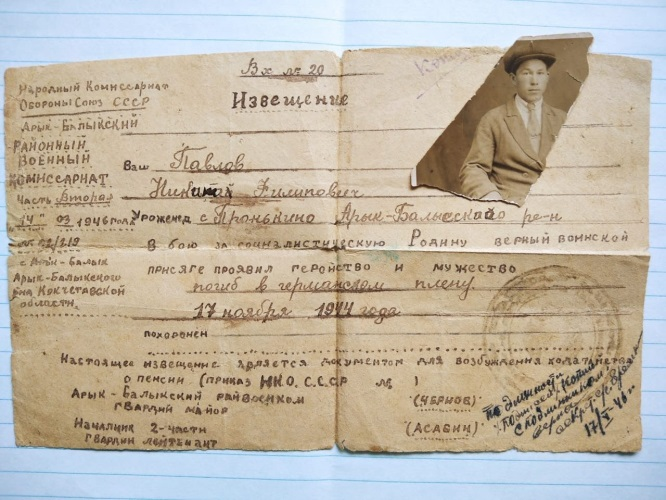 Вх № 20
Извещение
Народный Комиссариат
Обороны Союз СССР
Арык-Балыкский
районнын
военнын
комиссариат
Часть Вторая
"14" 03 1946 год
с Арык-Балык
Арык-Балыкского
р-на Кокчетавской
области.
Ваш Павлов
Филипович
Уроженец с Пронькино Арык-Балыкского ре-н
В бою за социалистическую Родину верный воинской
присяге проявил геройство и мужество
погиб в германском плену
17 ноября 1944 года
похоронен
Настоящее извещение является документом для возбуждения ходатайства
о пенсии (приказ НКО. СССР № )
Арык-Балыкский райвоенком
гвардии майор
(Чернов)
Началник 2-части
гвардии лейтенант
(Асабин)
с подлинником
верно
17/V 46 г